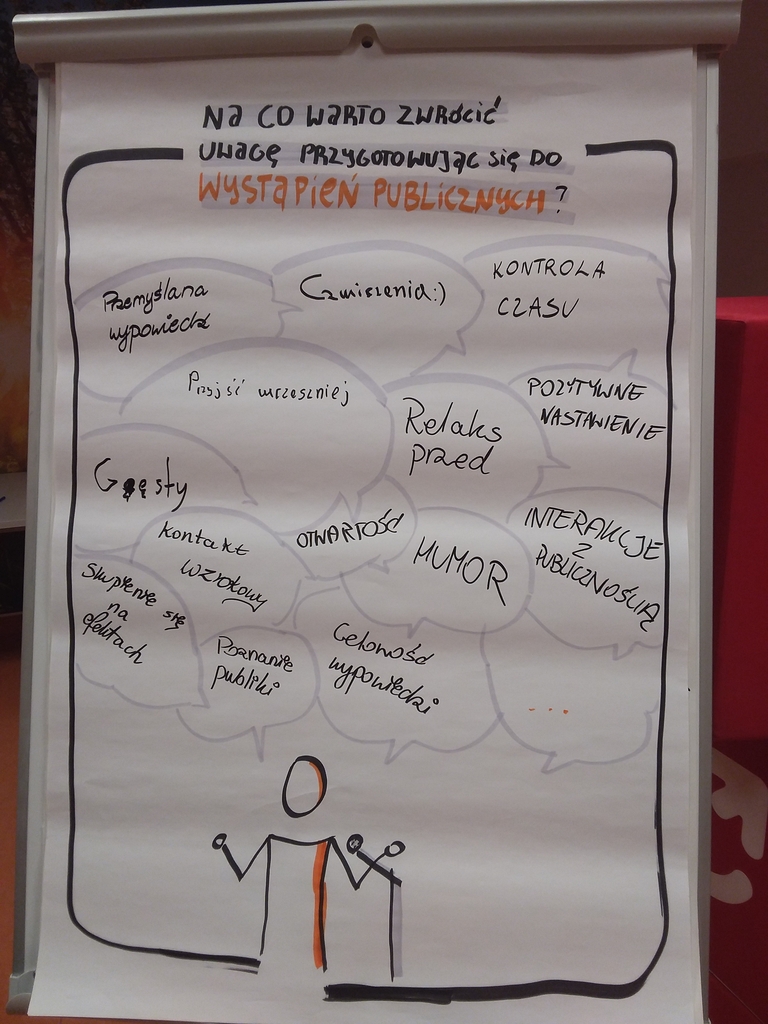 NA CO WARTO ZWRÓCIĆ
UWAGĘ PRZYGOTOWUJĄC SIĘ DO
WYSTĄPIEŃ PUBLICZNYCH?
Przemyślana
wypowiedź
Ćwiczenia:)
KONTROLA
CZASU
Przyjść wcześniej
Relaks
przed
POZYTYWNE
NASTAWIENIE
Gesty
Kontakt
wzrokowy
OTWARTOŚĆ
HUMOR
INTERAKCJE
Z
PUBLICZNOŚCIĄ
Skupienie się
na
efektach
Poznanie
publiki
Celowość
wypowiedzi
...